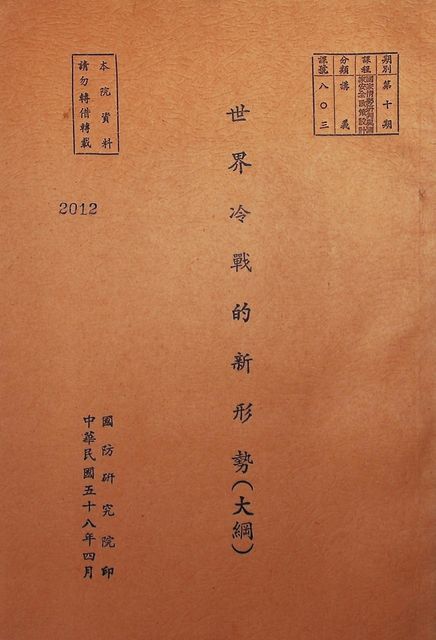 期別 第十期
課程
家安全政策設計
分類 講義
課號 八〇三
世界冷戰的新形勢(大綱)
本院資料
請勿轉借轉載
2012
國防研究院印
中華民國五十八年四月